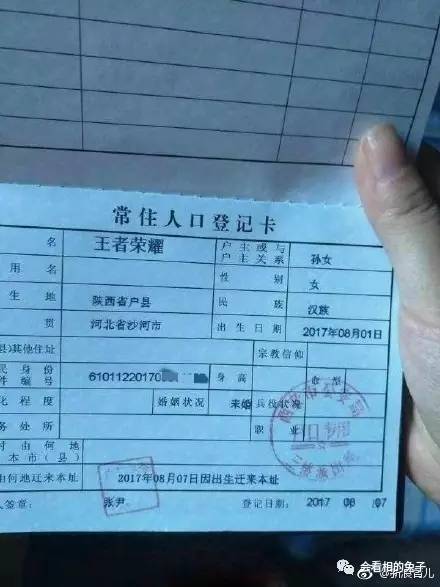 常住人口登记卡
名 王者荣耀 户主或与户主关系 孙女
用名 性别 女
生地 陕西省户县 民族 汉族
贯 河北省沙河市 出生日期 2017年08月01日
县)其他住址 宗教信仰
民身份
件编号 6101122017 身高 血型
化程度 婚姻状况 未婚 兵役状况
务处所 职业
时由何地
本市(县)
由何地迁来本址 2017年08月07日因出生迁来本址
人签章: 张尹 登记日期: 2017 08 07
会看相的兔子
@新晨育儿